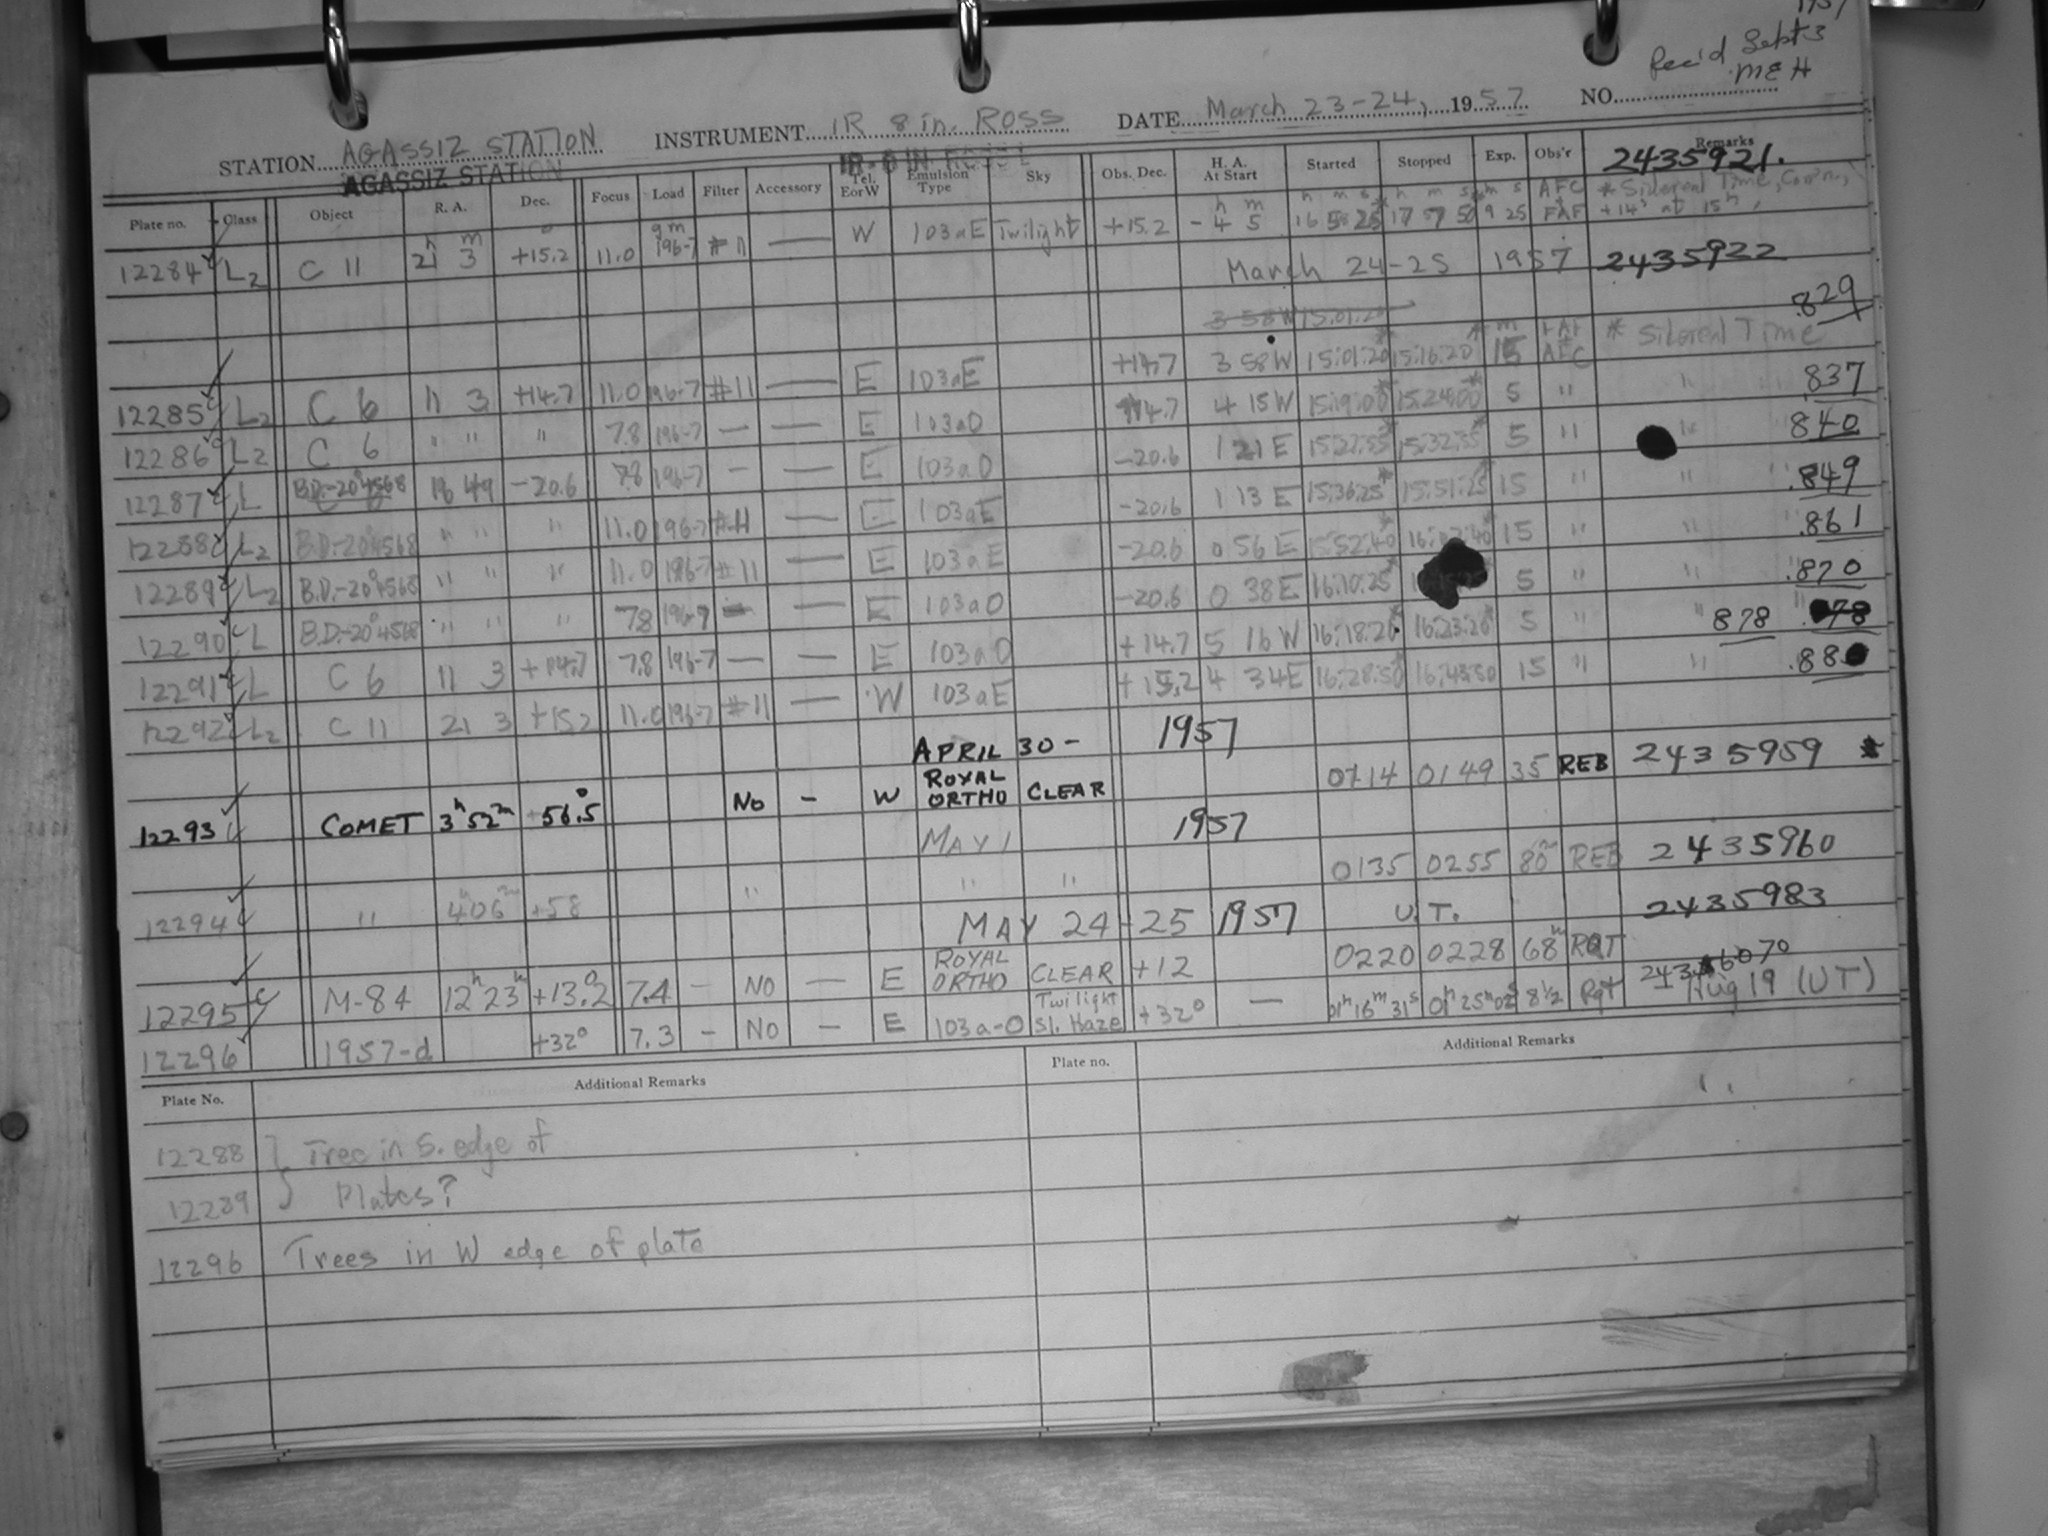 1957
Rec'd Sept 3
MEH
STATION AGASSIZ STATION INSTRUMENT IR 8 in. ROSS DATE March 23-24, 1957 NO.
AGASSIZ STATION IR-8 IN
Plate no. Class Object R. A. Dec. Focus Load Filter Accessory Tel. E or W Emulsion Type Sky Obs. Dec. H. A. At Start Started Stopped Exp. Obs'r Remarks
2435921.
12284 L2 C 11 21h 3m +15.2 11.0 196-7 #11 — W 103aE Twilight +15.2 -4 5 16 58 25 9 25 AFC FAF * Sidereal Time, Corrn, +14s at 15h,
March 24-25 1957 2435922
3 58W 15:01:20 .829
12285 L2 C 6 11 3 +14.7 11.0 196-7 #11 — E 103aE +14.7 3 58W 15:01:20* 15:16:20* 15 FAF AFC * Sidereal Time
12286 L2 C 6 " " " 7.8 196-7 — — E 103aO +14.7 4 15W 15:19:00* 15:24:00* 5 " " .837
12287 L B.D.-20°4568 18 49 -20.6 7.8 196-7 - — E 103aO -20.6 1 21 E 15:27:35* 15:32:35* 5 " " 840
12288 L2 B.D.-20°4568 " " " 11.0 196-7 #11 — E 103aE -20.6 1 13 E 15:36:25* 15:51:25* 15 " " " .849
12289 L2 B.D.-20°4568 " " " 11.0 196-7 #11 — E 103aE -20.6 0 56 E 15:52:40* 16:07:40* 15 " " " .861
12290 L B.D.-20°4568 " " " 7.8 196-7 — — E 103aO -20.6 0 38E 16:10:25* 5 " " .870
12291 L C 6 11 3 +14.7 7.8 196-7 — — E 103aO +14.7 5 16 W 16:18:20* 16:23:20* 5 " " 878 " .878
12292 L2 C 11 21 3 +15.2 11.0 196-7 #11 — W 103aE +15.2 4 34E 16:28:50 16:43:50 15 " " .88
APRIL 30 - 1957
12293 COMET 3h 52m +56.5° No - W ROYAL ORTHO CLEAR 0114 0149 35 REB 2435959
MAY 1 1957
12294 " 4h 06m +58 " " " 0135 0255 80m REB 2435960
MAY 24-25 1957 U.T. 2435983
12295 M-84 12h 23m +13.2° 7.4 - NO — E ROYAL ORTHO CLEAR +12 0220 0228 68m RQT
12296 1957-d +32° 7.3 - NO — E 103a-O Twilight Sl. Haze +32° — 01h 16m 31s 01h 25m 02s 8½ Rqt 2436070 Aug 19 (UT)
Plate No. Additional Remarks Plate no. Additional Remarks
12288 } Tree in S. edge of
12289 } Plates?
12296 Trees in W edge of plate